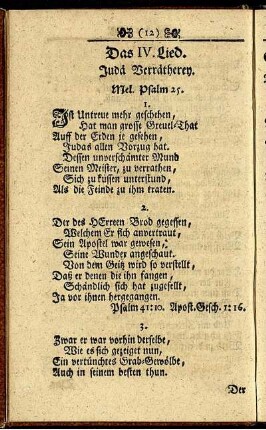 (12)
Das IV. Lied.
Judä Verrätherey.
Mel. Psalm 25.
1.
Ist Untreue mehr geschehen,
Hat man grosse Greuel-That
Auff der Erden je gesehen,
Judas allen Vorzug hat.
Dessen unverschämter Mund
Seinen Meister, zu verrathen,
Sich zu küssen unterstund,
Als die Feinde zu ihm traten.
2.
Der des HErren Brod gegessen,
Welchem Er sich anvertraut,
Sein Apostel war gewesen,
Seine Wunder angeschaut.
Von dem Geitz wird so verstellt,
Daß er denen die ihn fangen,
Schändlich sich hat zugesellt,
Ja vor ihnen hergegangen.
Psalm 41:10. Apost. Gesch. 1:16.
3.
Zwar er war vorhin derselbe,
Wie es sich gezeiget nun,
Ein vertünchtes Grab-Gewölbe,
Auch in seinem besten thun.
Der